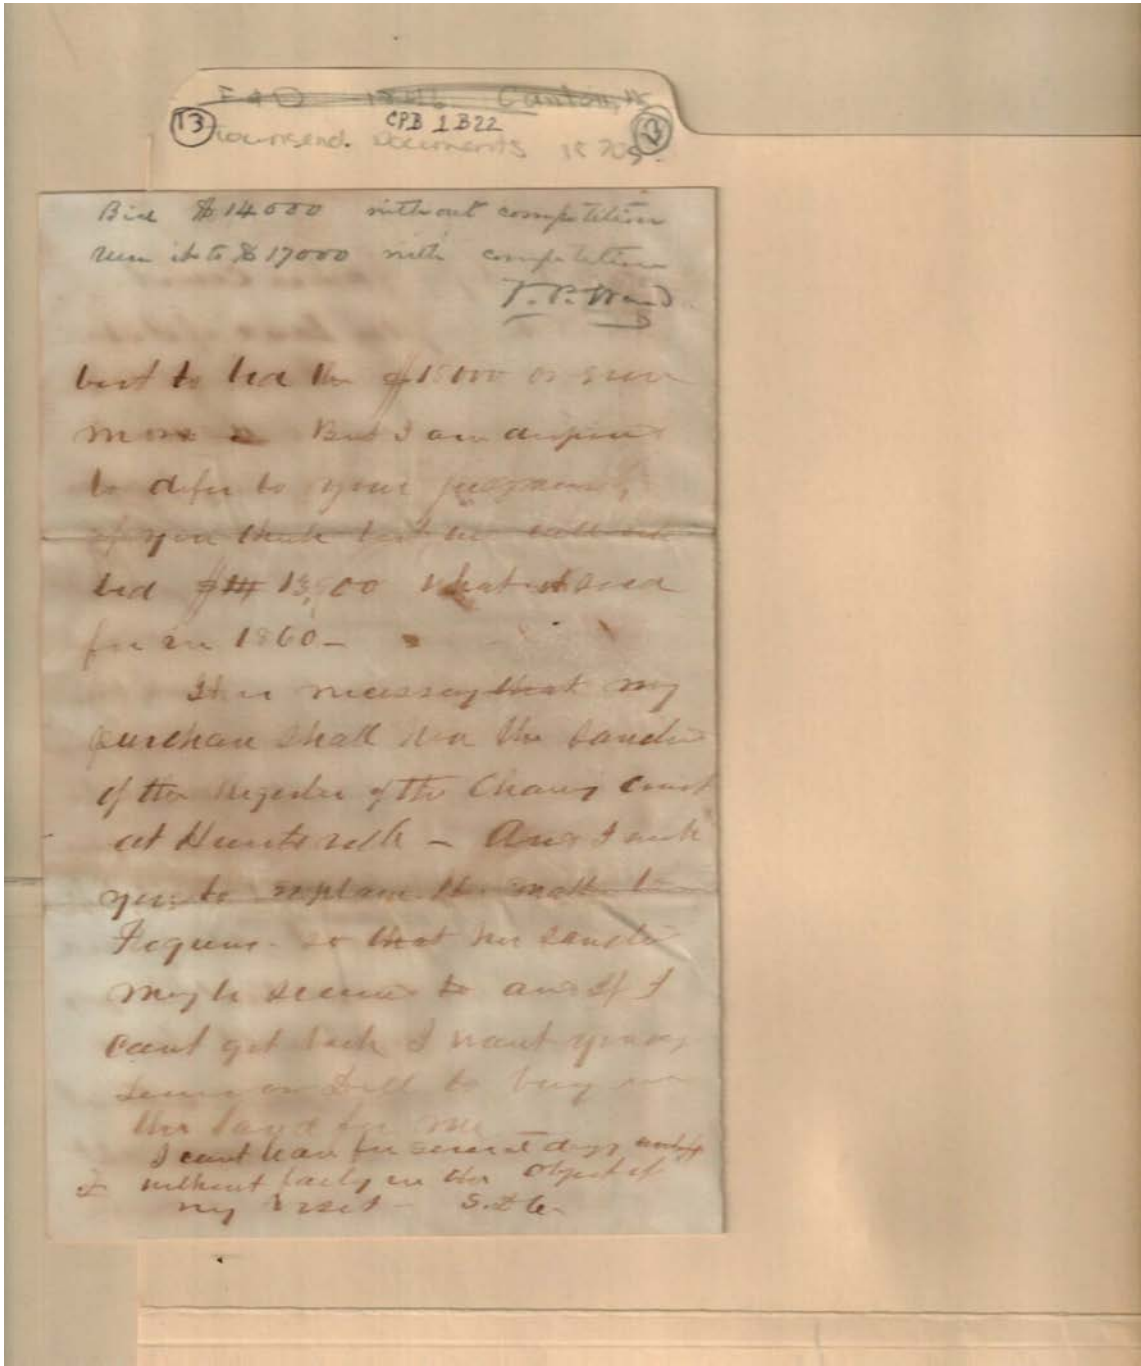 F & D 1846 Canton, Ms
13 CPB 1 B22
Townsend Documents 1870s
Bid $14000 without competition
Run it to $17000 with competition
best to bid the $15000 or even
more But I am disposed
to defer to your judgment,
if you think best we will
bid 13,500 what it sold
for in 1860 -
It is necessary that my
purchase shall have the sanction
of the Register of the Chancy Court
at Huntsville - And I wish
you to explain the matter to
so that his sanction
may be secured to and if I
cant get back I want you or
or Bill to buy in
the land for me
I cant leave for several days
without in the object of
my visit - S. D. C.